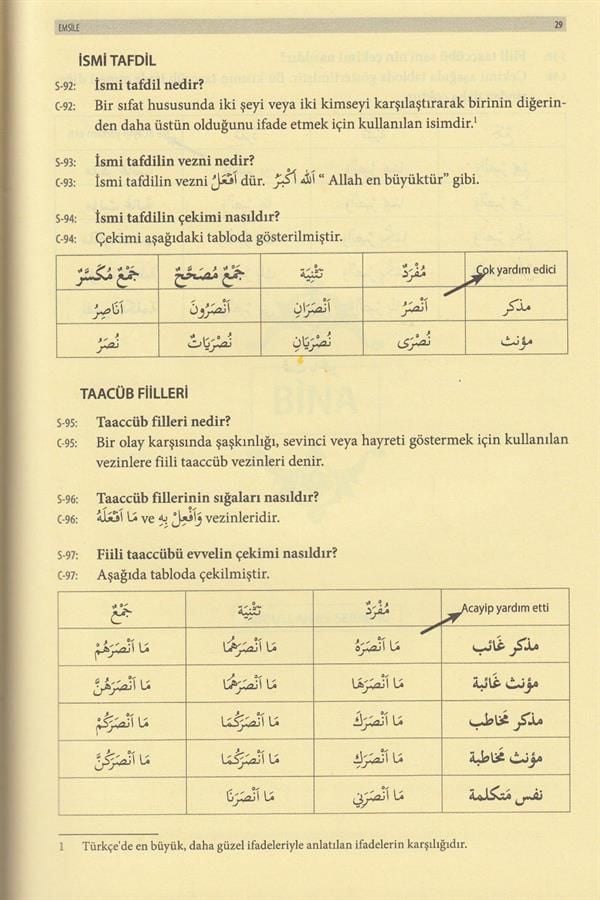 EMSİLE 29
İSMİ TAFDİL
S-92: İsmi tafdil nedir?
C-92: Bir sıfat hususunda iki şeyi veya iki kimseyi karşılaştırarak birinin diğerin-
den daha üstün olduğunu ifade etmek için kullanılan isimdir.¹
S-93: İsmi tafdilin vezni nedir?
C-93: İsmi tafdilin vezni اَفْعَلُ dür. اَللّٰه اَكْبَرُ “ Allah en büyüktür” gibi.
S-94: İsmi tafdilin çekimi nasıldır?
C-94: Çekimi aşağıdaki tabloda gösterilmiştir.
Çok yardım edici مُفْرَدٌ تَثْنِيَة جَمْعُ مُصَحَّحٌ جَمْعُ مُكَسَّرٌ
مذكر اَنْصَرُ اَنْصَرَانِ اَنْصَرُونَ اَنَاصِرُ
مؤنث نُصْرَى نُصْرَيَانِ نُصْرَيَاتٌ نُصَرُ
TAACÜB FİİLLERİ
S-95: Taaccüb filleri nedir?
C-95: Bir olay karşısında şaşkınlığı, sevinci veya hayreti göstermek için kullanılan
vezinlere fiili taaccüb vezinleri denir.
S-96: Taaccüb fillerinin sığaları nasıldır?
C-96: مَا اَفْعَلَهُ ve وَاَفْعِلْ بِهِ vezinleridir.
S-97: Fiili taaccübü evvelin çekimi nasıldır?
C-97: Aşağıda tabloda çekilmiştir.
Acayip yardım etti مُفْرَدٌ تَثْنِيَة جَمْعٌ
مذكر غَائب مَا اَنْصَرَهُ مَا اَنْصَرَهُمَا مَا اَنْصَرَهُمْ
مؤنث غَائبة مَا اَنْصَرَهَا مَا اَنْصَرَهُمَا مَا اَنْصَرَهُنَّ
مذكر مُخَاطب مَا اَنْصَرَكَ مَا اَنْصَرَكُمَا مَا اَنْصَرَكُمْ
مؤنث مُخَاطبة مَا اَنْصَرَكِ مَا اَنْصَرَكُمَا مَا اَنْصَرَكُنَّ
نفس مَتكلمة مَا اَنْصَرَنِي مَا اَنْصَرَنَا
1 Türkçe'de en büyük, daha güzel ifadeleriyle anlatılan ifadelerin karşılığıdır.